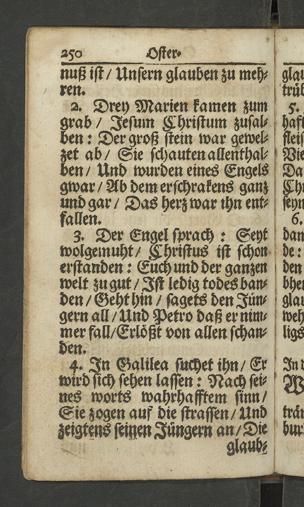 250 Oster-
nuß ist / Unsern glauben zu meh-
ren.
2. Drey Marien kamen zum
grab / Jesum Christum zusal-
ben: Der groß stein war gewel-
zet ab / Sie schauten allenthal-
ben / Und wurden eines Engels
gwar / Ab dem erschrakens ganz
und gar / Das herz war ihn ent-
fallen.
3. Der Engel sprach: Seyt
wolgemuht / Christus ist schon
erstanden: Euch und der ganzen
welt zu gut / Ist ledig todes ban-
den / Geht hin / sagets den Jün-
gern all / Und Petro daß er nim-
mer fall / Erlößt von allen schan-
den.
4. In Galilea suchet ihn / Er
wird sich sehen lassen: Nach sei-
nes worts wahrhafftem sinn /
Sie zogen auf die strassen / Und
zeigtens seinen Jüngern an / Die
glaub-